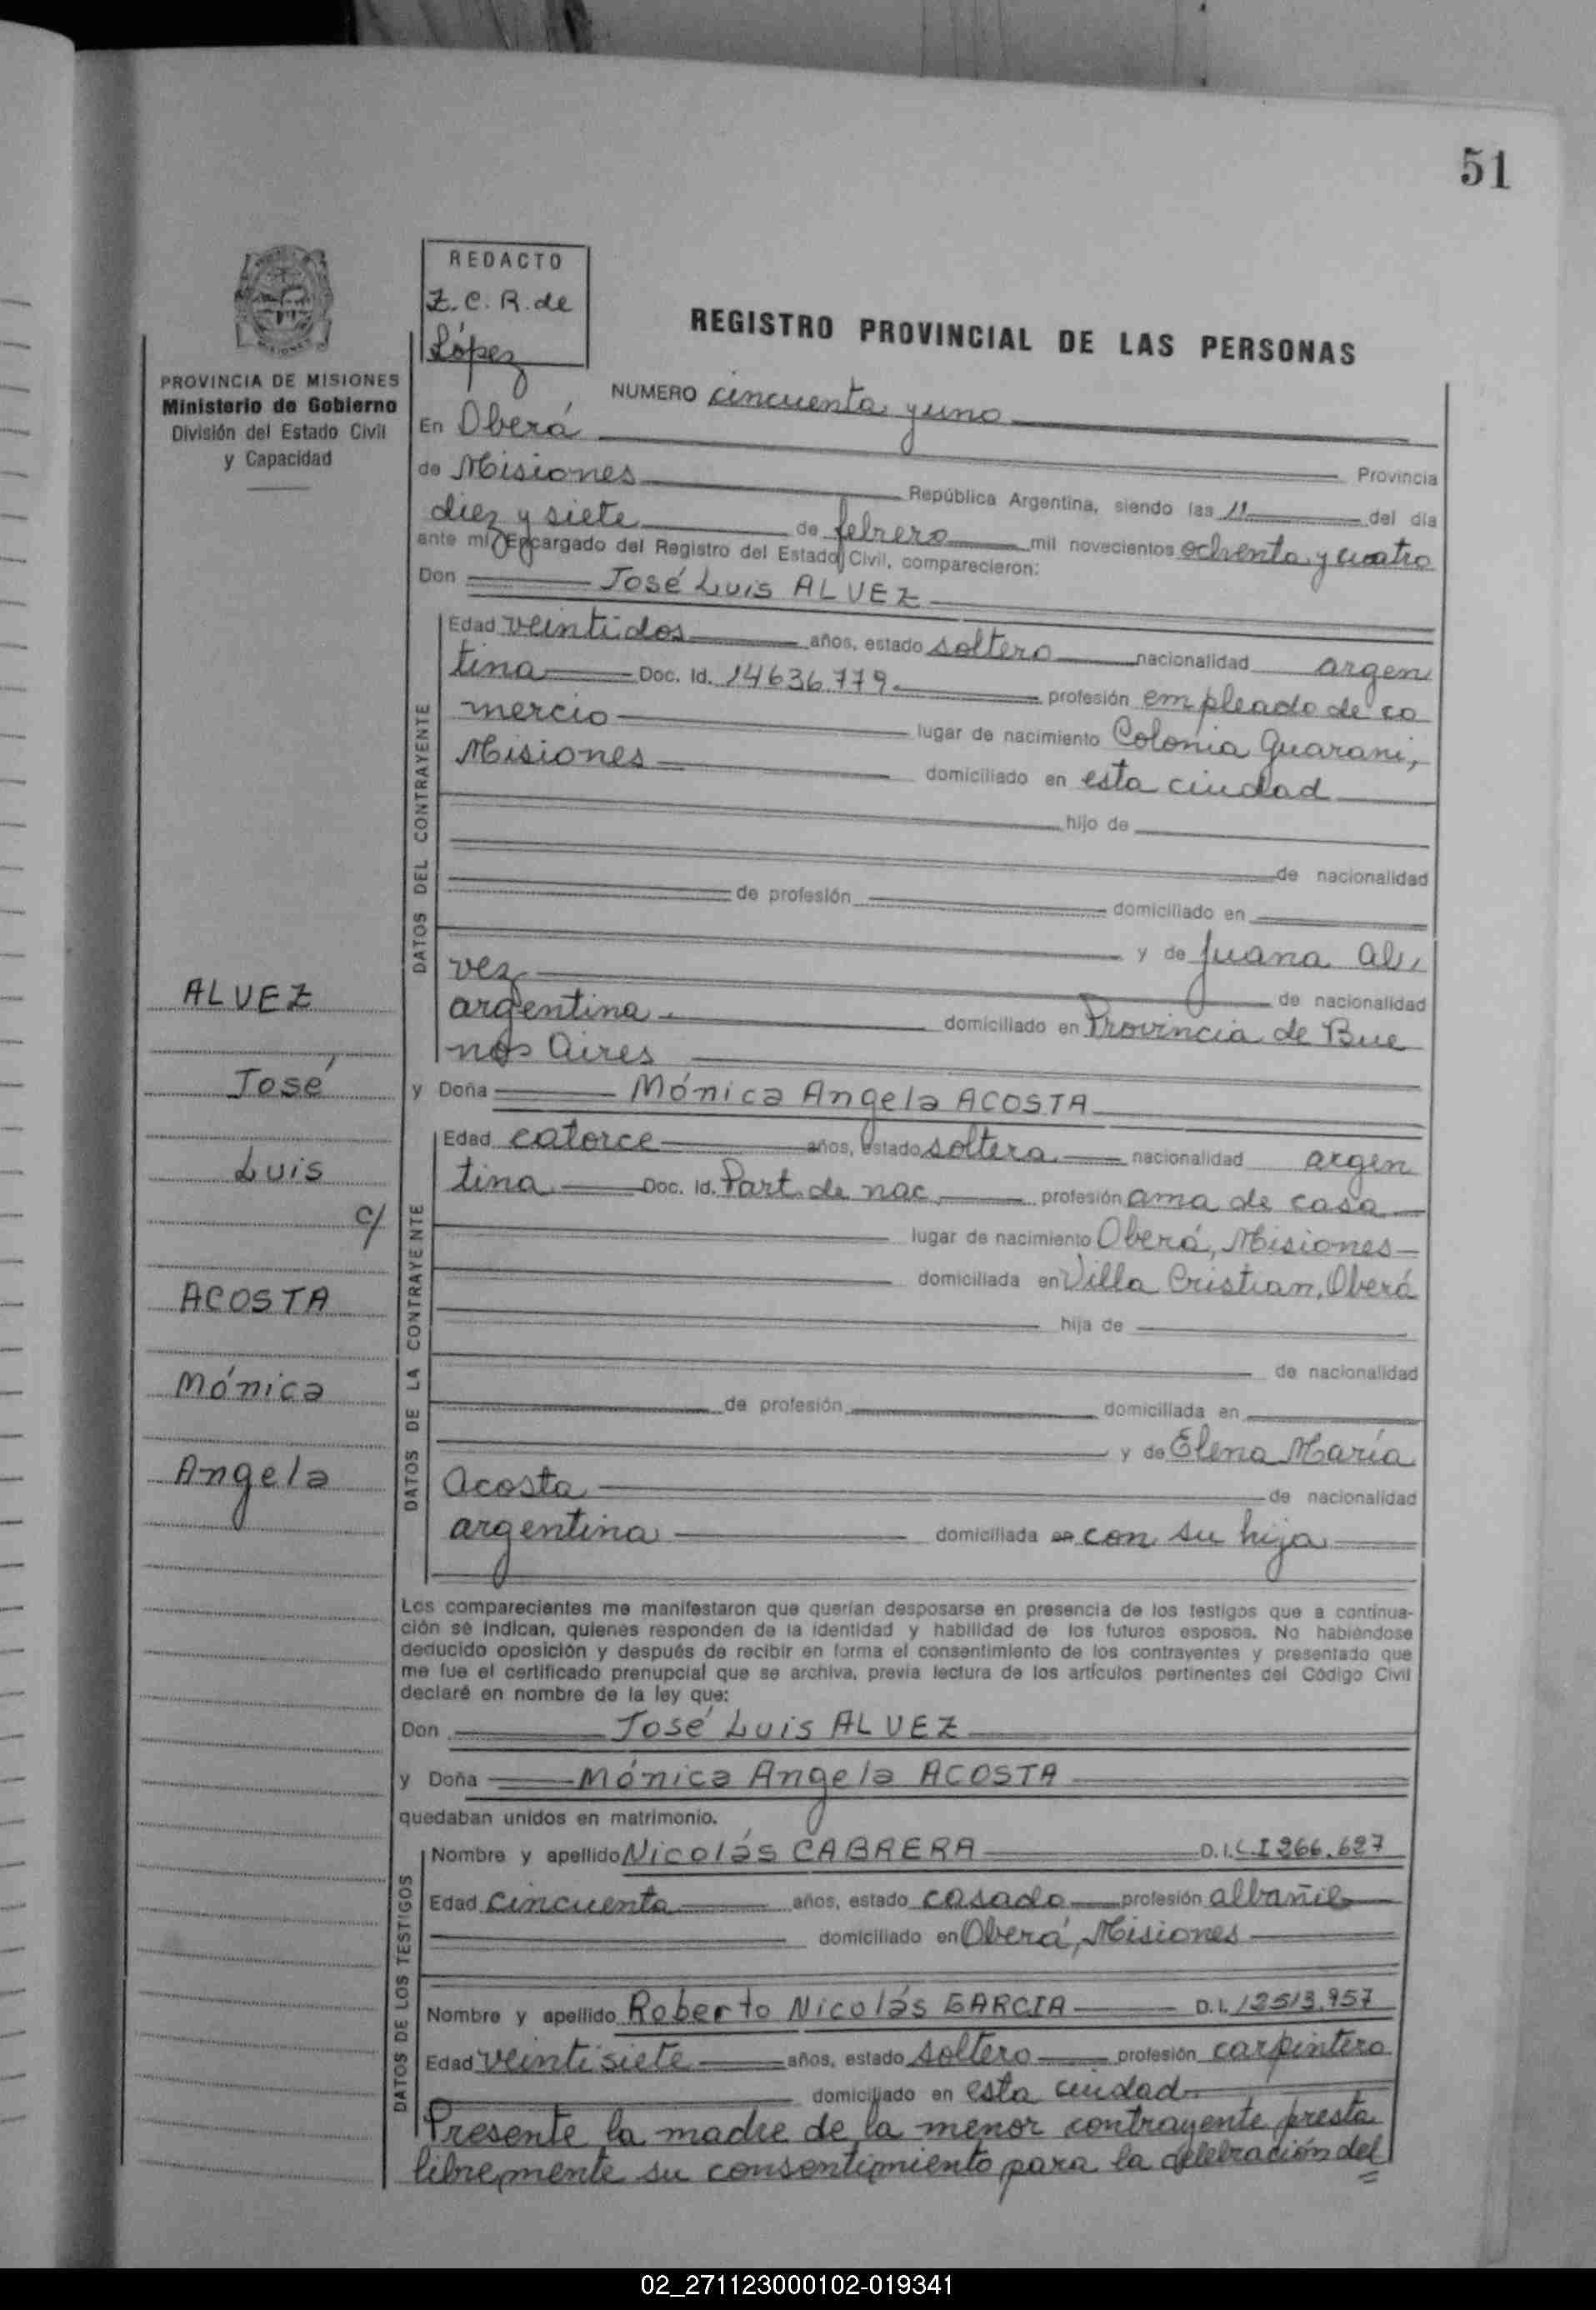 51
REDACTO
Z. C. R. de
López
REGISTRO PROVINCIAL DE LAS PERSONAS
PROVINCIA DE MISIONES
Ministerio de Gobierno
División del Estado Civil
y Capacidad
NUMERO cincuenta y uno
En Oberá
Provincia
de Misiones República Argentina, siendo las 11 del día
diez y siete de febrero mil novecientos ochenta y cuatro
ante mi, Encargado del Registro del Estado Civil, comparecieron:
Don José Luis ALVEZ
DATOS DEL CONTRAYENTE
Edad veintidos años, estado soltero nacionalidad argen
tina Doc. Id. 14636.779 profesión empleado de co
mercio lugar de nacimiento Colonia Guaraní,
Misiones domiciliado en esta ciudad
hijo de
de nacionalidad
de profesión domiciliado en
y de Juana Al,
vez de nacionalidad
argentina domiciliado en Provincia de Bue
nos Aires
y Doña Mónica Angela ACOSTA
DATOS DE LA CONTRAYENTE
Edad catorce años, estado soltera nacionalidad argen
tina Doc. Id. Part. de nac. profesión ama de casa
lugar de nacimiento Oberá, Misiones
domiciliada en Villa Cristian, Oberá
hija de
de nacionalidad
de profesión domiciliada en
y de Elena María
Acosta de nacionalidad
argentina domiciliada en con su hija
ALVEZ
José
Luis
c/
ACOSTA
Mónica
Angela
Los comparecientes me manifestaron que querían desposarse en presencia de los testigos que a continua-
ción se indican, quienes responden de la identidad y habilidad de los futuros esposos. No habiéndose
deducido oposición y después de recibir en forma el consentimiento de los contrayentes y presentado que
me fue el certificado prenupcial que se archiva, previa lectura de los artículos pertinentes del Código Civil
declaré en nombre de la ley que:
Don José Luis ALVEZ
y Doña Mónica Angela ACOSTA
quedaban unidos en matrimonio.
DATOS DE LOS TESTIGOS
Nombre y apellido Nicolás CABRERA D.I. C.I 266.627
Edad cincuenta años, estado casado profesión albañil
domiciliado en Oberá, Misiones
Nombre y apellido Roberto Nicolás GARCIA D.I. 12513.957
Edad veintisiete años, estado soltero profesión carpintero
domiciliado en esta ciudad
Presente la madre de la menor contrayente presta
libremente su consentimiento para la celebración del
02_271123000102-019341